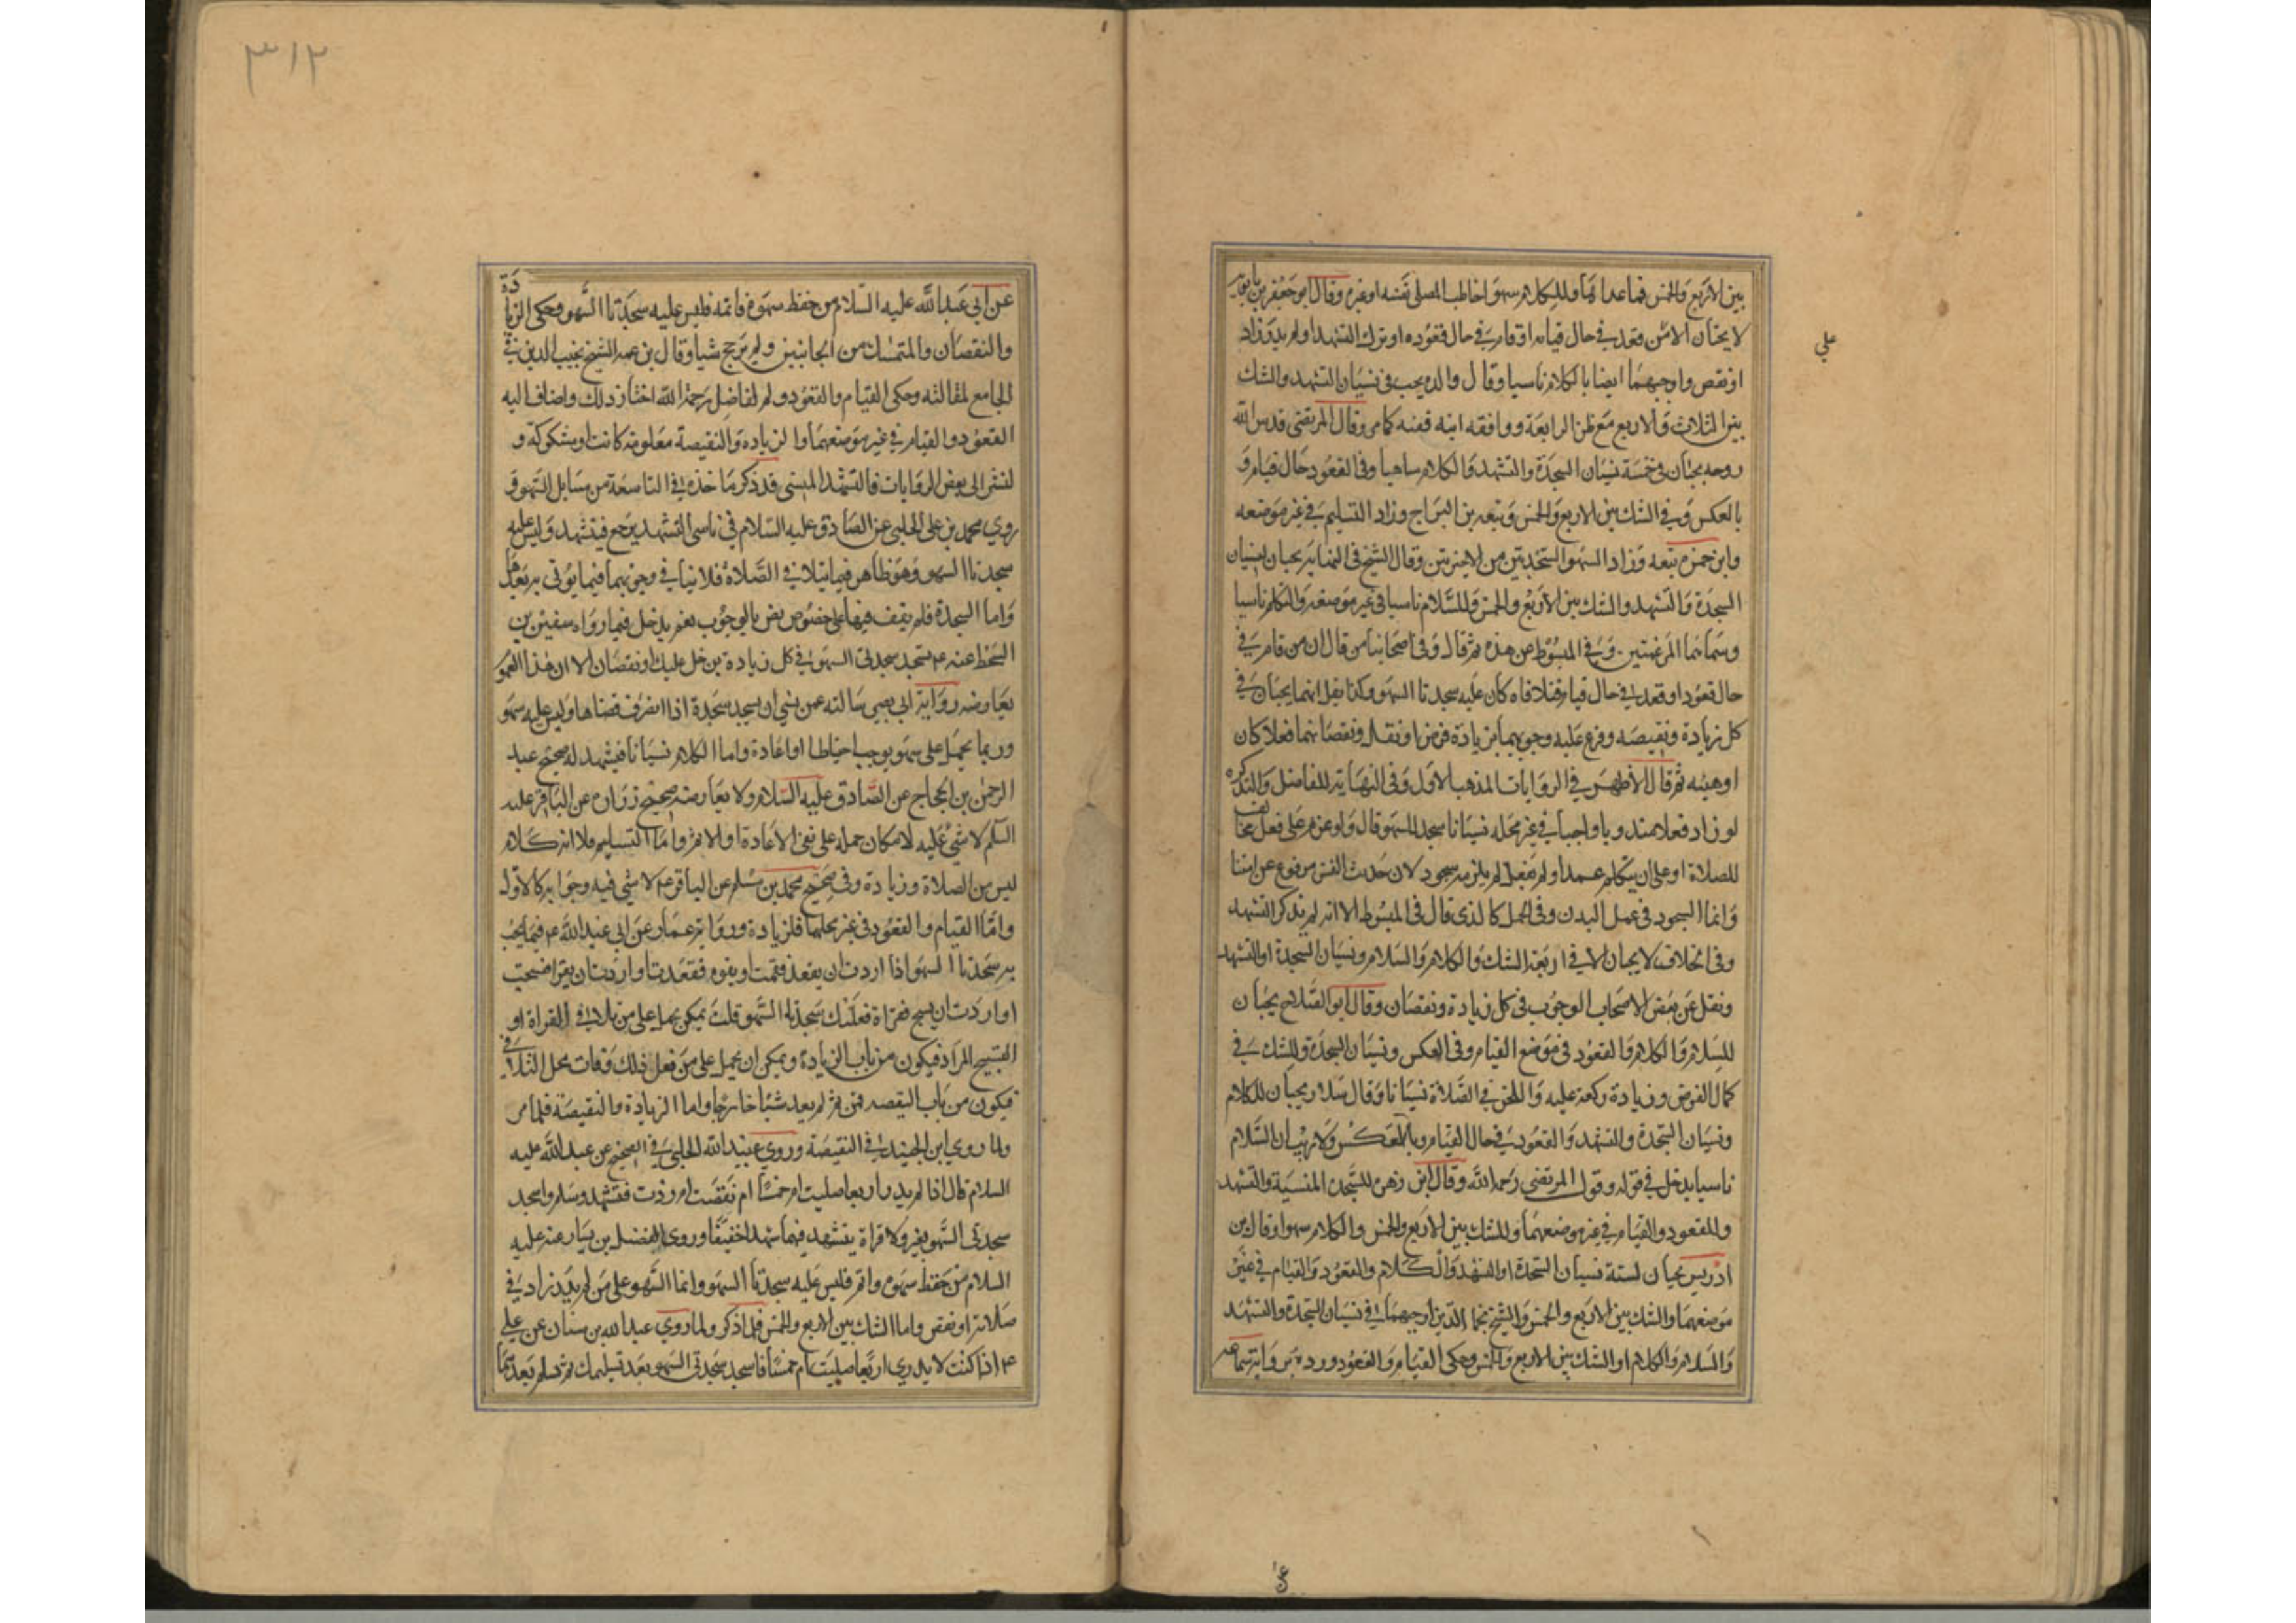 بين الاربع والخمس فما عداهما وللكلام سهوا خاطب المصلي نفسه او غيره وقال ابو جعفر بن بابويه
لا يجبان الا على من قعد في حال قيامه او قام في حال قعوده او ترك التشهد او لم يدر زاد
او نقص واوجبهما ايضا بالكلام ناسيا وقال والده يجب في نسيان التشهد والشك
بين الثلاث والاربع مع ظن الرابعة ووافقه ابنه فيه كما مر وقال المرتضى قدس الله
روحه يجبان في خمسة نسيان السجدة والتشهد والكلام ساهيا وفي القعود حال قيام و
بالعكس وفي الشك بين الاربع والخمس وتبعه بن البراج وزاد التسليم في غير موضعه
وابن حمزة تبعه وزاد السهو السجدتين من الاخيرتين وقال الشيخ في النهاية يجبان لنسيان
السجدة والتشهد والشك بين الاربع والخمس وللسلام ناسيا في غير موضعه والتكلم ناسيا
وسماهما المرغمتين وفي المبسوط عن هذه ثم قال وفي اصحابنا من قال ان من قام في
حال قعود او قعد في حال قيام فتلافاه كان عليه سجدتا السهو وكذا نقل انهما يجبان في
كل زيادة ونقيصة وفرع عليه وجوبهما بزيادة فرض او نفل ونقصانهما فعلا كان
او هيئه ثم قال الاظهر في الروايات المذهب الاول وفي النهاية للفاضل والتذكره
لو زاد فعلا مندوبا واجبا في غير محله نسيانا سجد للسهو قال ولو عزم على فعل مخالف
للصلاة او على ان يتكلم عمدا ولم يفعل لم يلزمه سجود لان حديث النفس مرفوع عن امتنا
وانما السجود في عمل البدن وفي الجمل كالذي قال في المبسوط الا انه لم يذكر التشهد
وفي الخلاف لا يجبان الا في اربعة الشك والكلام والسلام ونسيان السجدة او التشهد
ونقل عن بعض الاصحاب الوجوب في كل زيادة ونقصان وقال ابو الصلاح يجبان
للسلام والكلام والقعود في موضع القيام وفي العكس ونسيان السجدة وللشك في
كمال الفرض وزيادة ركعة عليه واللحن في الصلاة نسيانا وقال سلار يجبان للكلام
ونسيان السجدة والتشهد والقعود في حال القيام وبالعكس ولا ريب ان السلام
ناسيا يدخل في قوله وقول المرتضى رحمه الله وقال ابن زهرة للسجدة المنسية والتشهد
وللقعود والقيام في غير موضعهما وللشك بين الاربع والخمس والكلام سهوا وقال بن
ادريس يجبان لستة نسيان السجدة او التشهد والكلام والقعود والقيام في غير
موضعهما والشك بين الاربع والخمس والشيخ نجم الدين اوجبهما في نسيان السجدة والتشهد
والسلام والكلام او الشك بين الاربع والخمس وحكى القيام والقعود ورده برواية سماعه
علي
عن
٣١٢
عن ابي عبد الله عليه السلام من حفظ سهوه فاتمه فليس عليه سجدتا السهو وحكى الزيادة
والنقصان والمتمسك من الجانبين ولم يرجح شيا وقال بن عمه الشيخ نجيب الدين في
الجامع لمقالته وحكى القيام والقعود ولم الفاضل رحمه الله اختار ذلك واضاف اليه
القعود والقيام في غير موضعهما والزيادة والنقيصة معلومة كانت او مشكوكة و
لنشر الى بعض الروايات فالتشهد المنسي قد ذكر ماخذه في التاسعة من مسايل السهو و
روي محمد بن علي الحلبي عن الصادق عليه السلام في ناسي التشهد يرجع فيتشهد وليس عليه
سجدتا السهو وهو ظاهر فيما يتلافى في الصلاة فلا ينافي وجوبهما فيما يؤتى به بعدها
واما السجدة فلم يقف فيها على خصوص نص بالوجوب نعم يدخل فيما رواه سفين بن
السمط عنه ع تسجد سجدتي السهو في كل زيادة يدخل عليك او نقصان الا ان هذا العموم
يعارضه رواية ابي بصير سالته عمن نسي ان يسجد سجدة اذا انصرف قضاها وليس عليه سهو
وربما يحمل على سهو يوجب احتياطا او اعادة واما الكلام نسيانا فيشهد له صحيح عبد
الرحمن بن الحجاج عن الصادق عليه السلام ولا يعارضه صحيح زرارة عن الباقر عليه
السلم لا شي عليه لامكان حمله على نفي الاعادة او الاثم واما التسليم فلانه كلام
ليس من الصلاة وزيادة وفي صحيح محمد بن مسلم عن الباقر ع لا شي فيه وجوابه كالاول
واما القيام والقعود في غير محلهما فللزيادة ورواية عمار عن ابي عبد الله ع فيما يجب
به سجدتا السهو اذا اردت ان يقعد فقمت او يقوم فقعدت او اردت ان يقرا فسبحت
او اردت ان يسبح فقراة فعليك سجدتا السهو قلت يمكن حملها على من تلافى القراة او
التسبيح المراد فيكون من باب الزيادة ويمكن ان يحمل على من فعل ذلك وفات محل التلافي
فيكون من باب النقصه فمن ثم لم يعد شيئا خارجا واما الزيادة والنقيصة فلما مر
ولما روي ابن الجنيد في النقيصة وروي عبيد الله الحلبي في الصحيح عن عبد الله عليه
السلام قال اذا لم يدر اربعا صليت ام خمسا ام نقصت ام زدت فتشهد وسلم واسجد
سجدتي السهو بغير ولا قراة يتشهد فيهما تشهدا خفيفا وروى الفضيل بن يسار عنه عليه
السلام من حفظ سهوه واتم فليس عليه سجدتا السهو وانما السهو على من لم يدر زاد في
صلاته او نقص واما الشك بين الاربع والخمس فلما ذكر ولما روي عبد الله بن سنان عن علي
ع اذا كنت لا يدري اربعا صليت ام خمسا فاسجد سجدتي السهو بعد تسليمك ثم سلم بعدهما